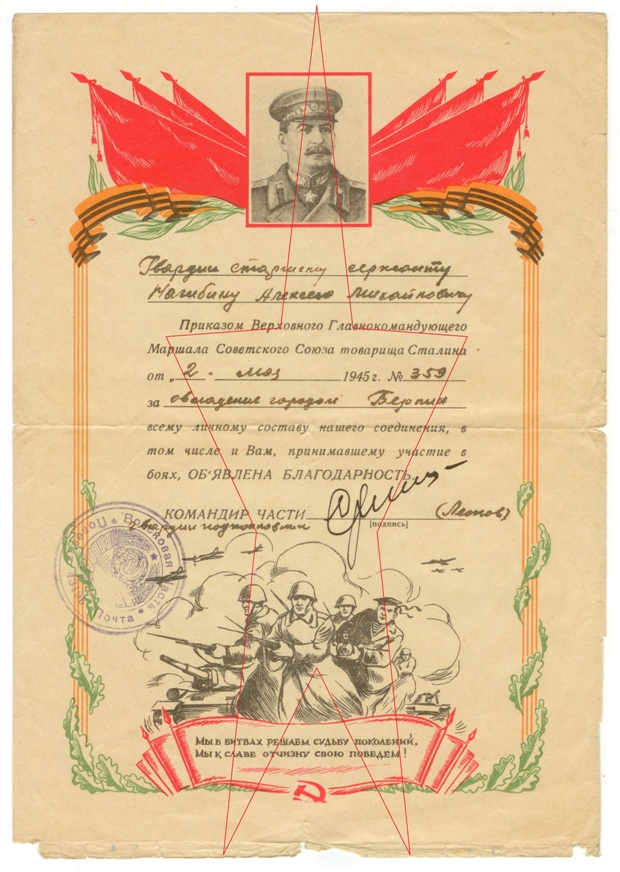 Гвардии старшему сержанту
Нагибину Алексею Михайловичу
Приказом Верховного Главнокомандующего
Маршала Советского Союза товарища Сталина
от „2 . мая 1945 г. № 359
за овладение городом Берлин
всему личному составу нашего соединения, в
том числе и Вам, принимавшему участие в
боях, ОБ'ЯВЛЕНА БЛАГОДАРНОСТЬ.
КОМАНДИР ЧАСТИ (Леонов)
Гвардии подполковник [подпись]
Войсковая часть Полевая Почта
МЫ В БИТВАХ РЕШАЕМ СУДЬБУ ПОКОЛЕНИЙ,
МЫ К СЛАВЕ ОТЧИЗНУ СВОЮ ПОВЕДЕМ!